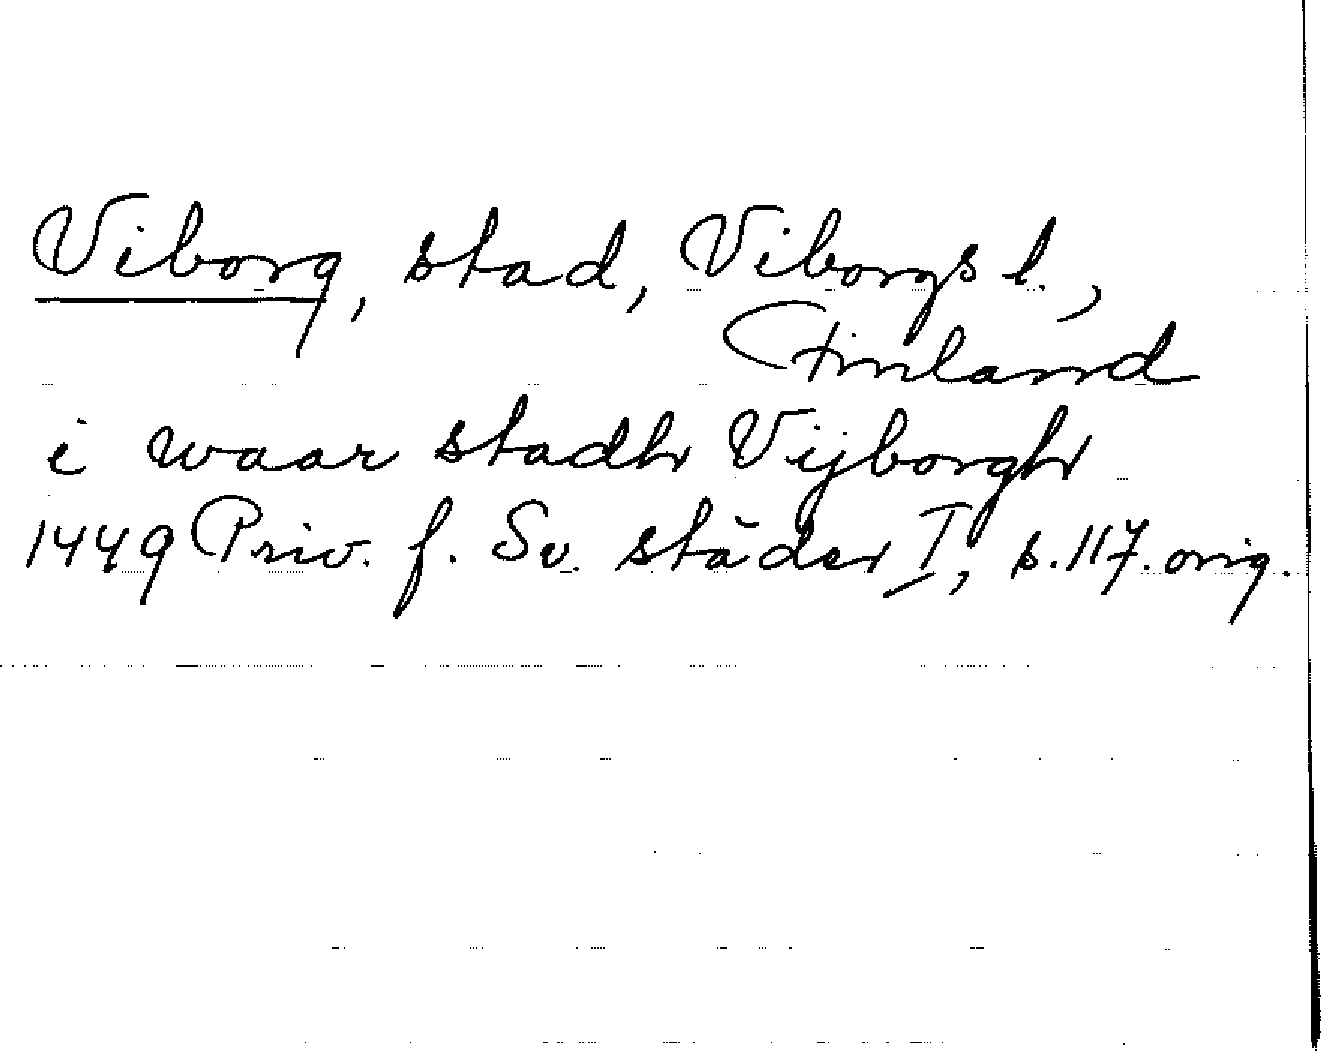 Viborg, stad, Viborgs l.,
Finland
i waar stadh Vijborgh
1449 Priv. f. Sv. städer I, s. 117. orig.